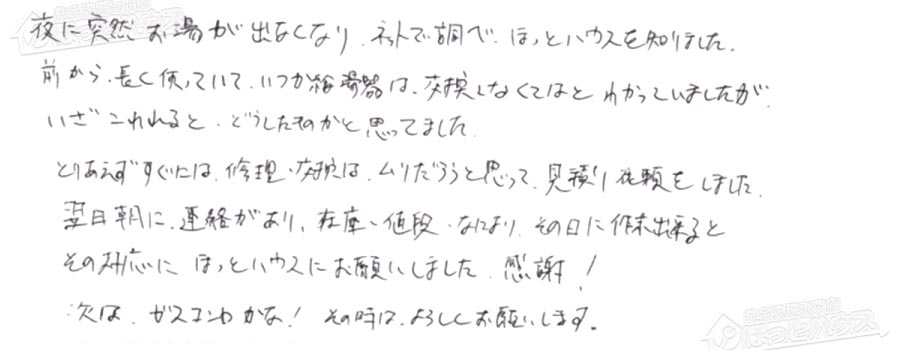 夜に突然お湯が出なくなり、ネットで調べ、ほっとハウスを知りました。
前から、長く使っていて、いつか給湯器は、交換しなくてはとわかっていましたが、
いざこわれると、どうしたものかと思ってました。
とりあえずすぐには、修理・交換は、ムリだろうと思って、見積り依頼をしました。
翌日朝に、連絡があり、在庫・値段・なにより、その日に作業出来ると
その対応にほっとハウスにお願いしました。感謝!
次は、ガスコンロかな!その時は、よろしくお願いします。
ほっとハウス
ほっとハウス